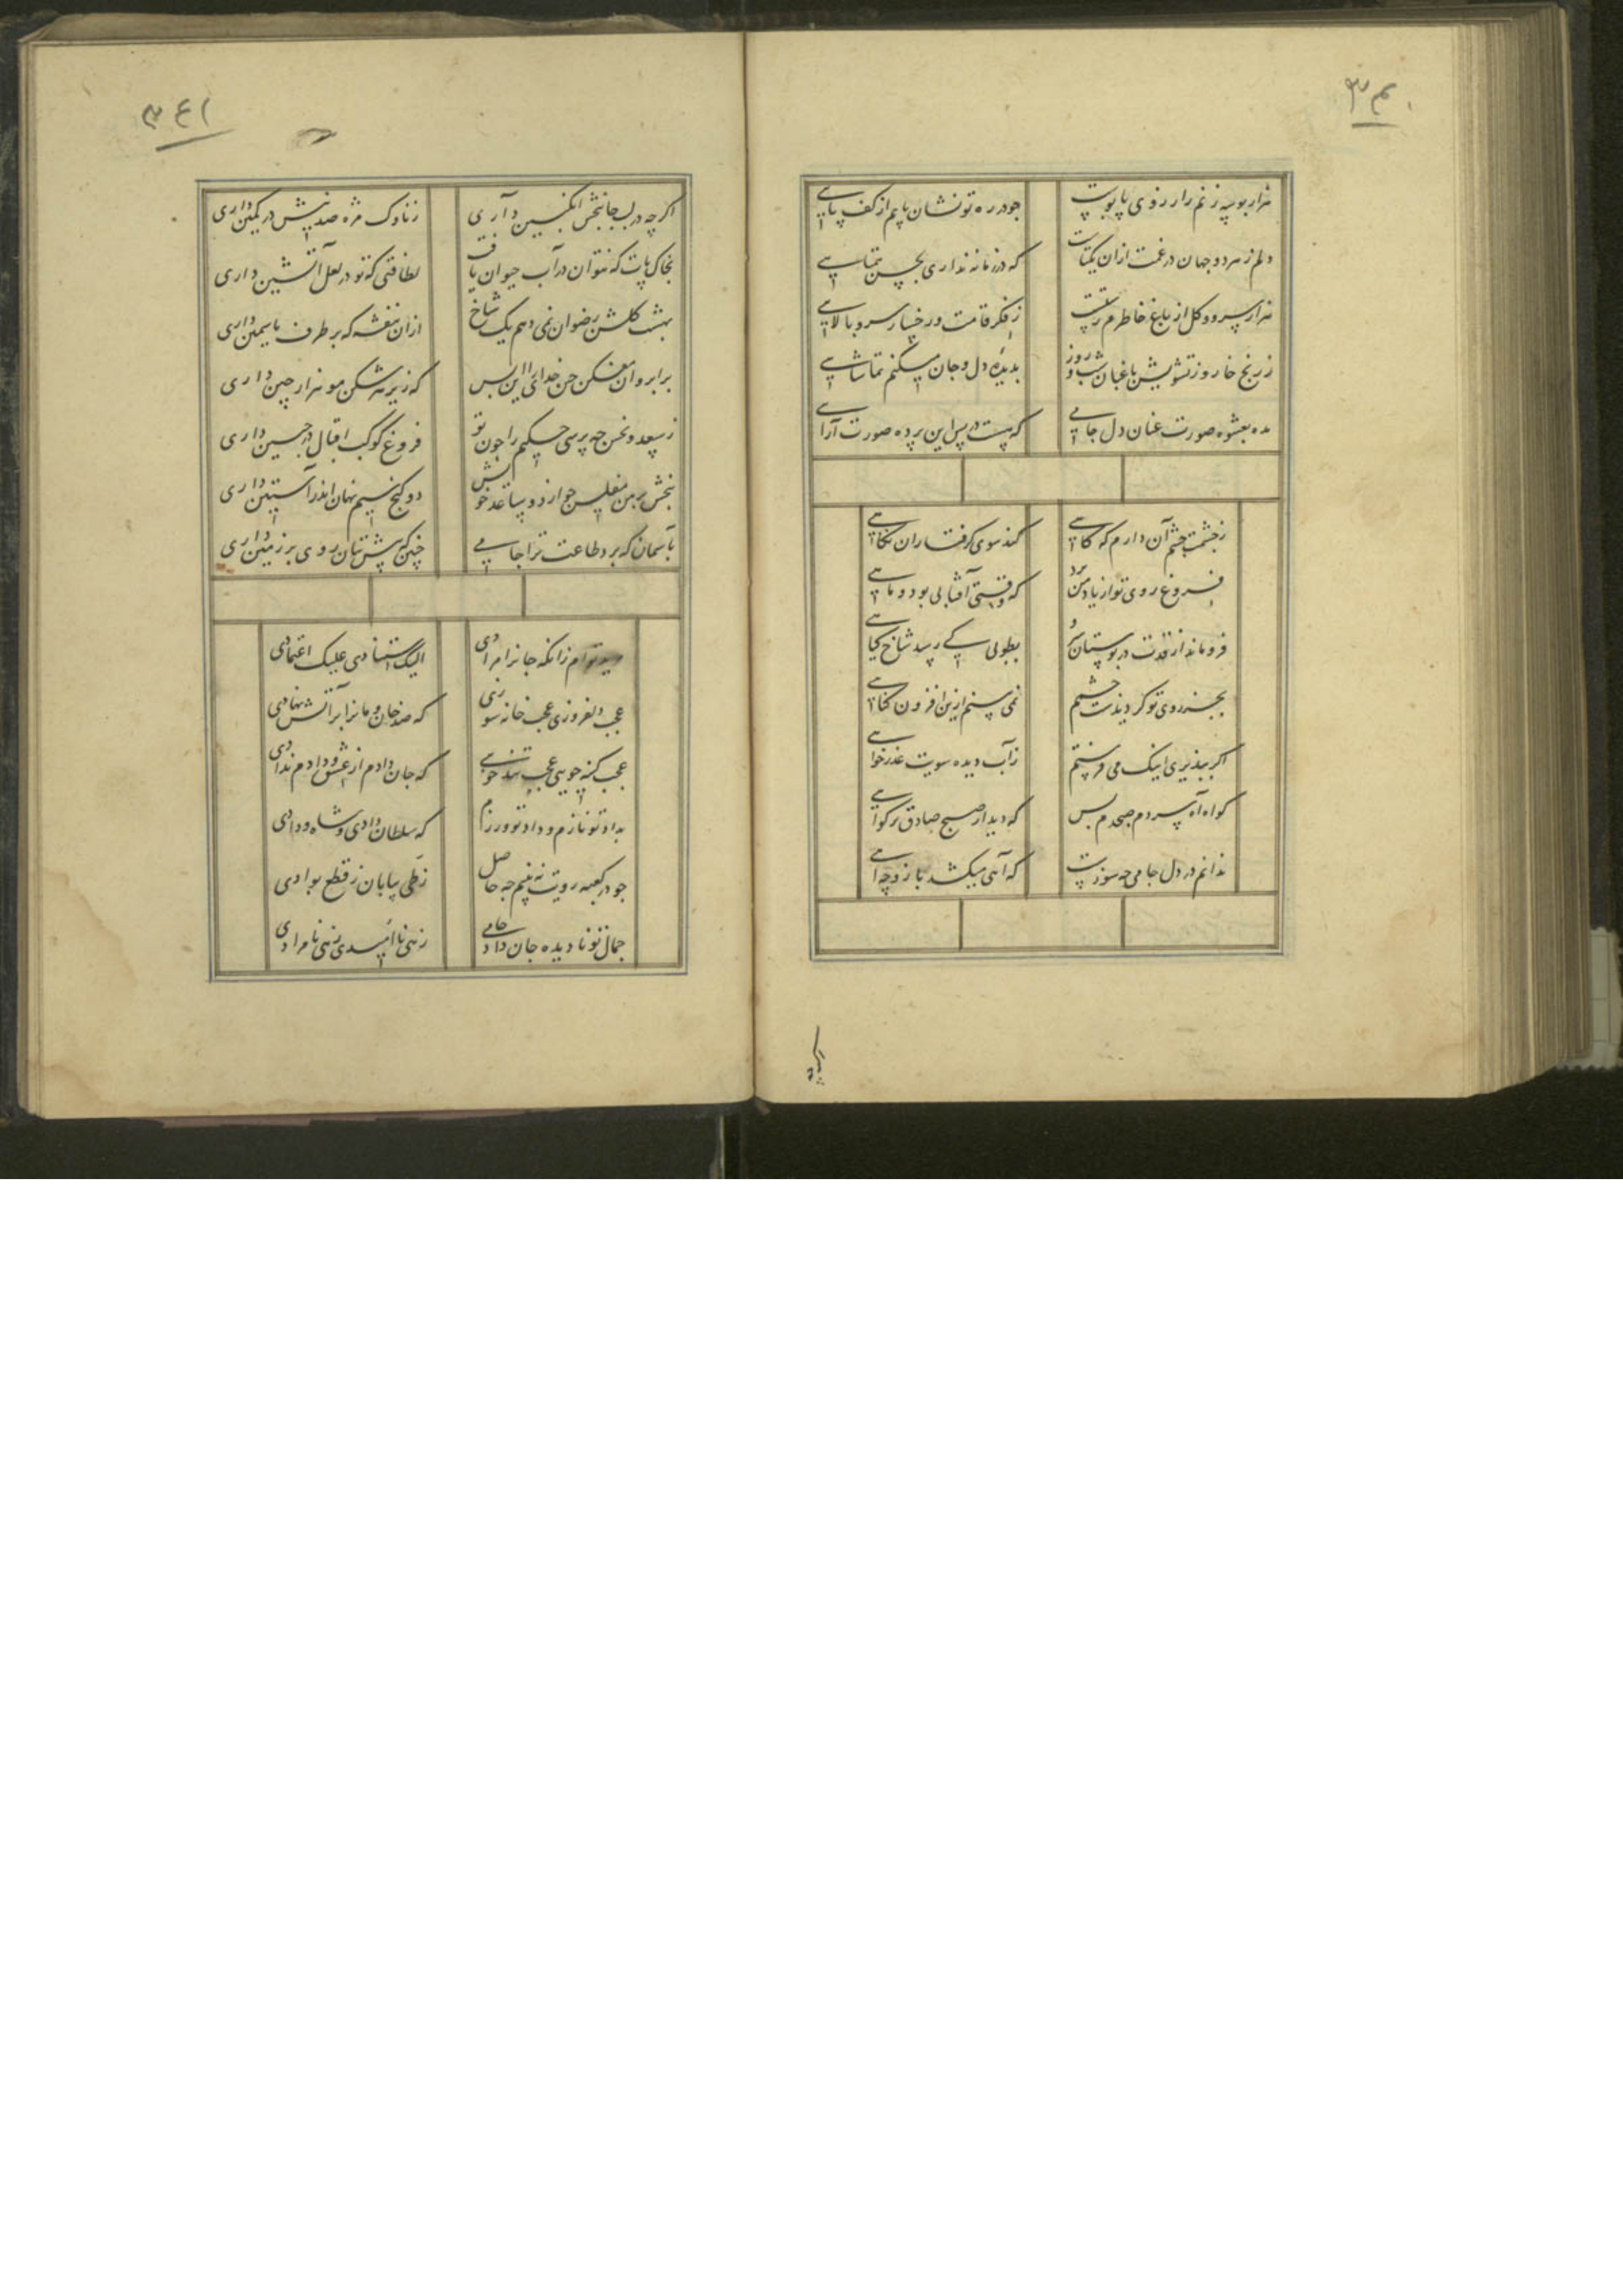 ۳۴۰
هزار بوسه زنم زار روی پا بوست چو در ره تو نشان یابم از کف پایی
دلم ز هر دو جهان در غمت ازان یکتاست که در زمانه نداری بحسن همتایی
هزار سرو و گل از باغ خاطرم رستست ز فکر قامت و رخسار سرو بالایی
ز رنج خار و ز تشویش باغبان شب و روز بدیده دل و جان میکنم تماشایی
مده بعشوه صورت عنان دل جامی که هست در پس این پرده صورت آرایی
ز چشمت چشم آن دارم که گاهی کند سوی گرفتاران نگاهی
فروغ روی تو از یاد من برد که وقتی آفتابی بود و ماهی
فرو ماند از قدت در بوستان سرو بطوبی کی رسد شاخ گیاهی
بجز روی تو گر دیدست چشمم نمی بینم ازین افزون گناهی
اگر بپذیری اینک می فرستم ز آب دیده سویت عذرخواهی
گواه آه سردم صبحدم بس که دید از صبح صادق تر گواهی
ندانم در دل جامی چه سوزست که آهی میکشد باز و چه آهی
اگرچه
۳۴۱
اگر چه در لب جانبخش انگبین داری ز ناوک مژه صد نیش در کمین داری
بخاک پات که نتوان در آب حیوان یافت لطافتی که تو در لعل آتشین داری
بهشت گلشن رضوان نمی دهم یک شاخ ازان بنفشه که بر طرف یاسمین داری
بر ابروان مفکن چین خدای را این بس که زیر هر شکن مو هزار چین داری
ز سعد و نحس چه پرسی حکیم را چون تو فروغ کوکب اقبال در جبین داری
ببخش بر من مفلس چو از دو ساعد خویش دو گنج سیم نهان اندر آستین داری
بآسمان که برد طاعت ترا جامی چنین که پیش بتان روی بر زمین داری
زانکه جانرا مرادی الیک استنادی علیک اعتمادی
عجب دلفروزی عجب خانه سوزی که صد خان و مانرا بر آتش نهادی
عجب کینه جویی عجب تندخویی که جان دادم از عشق و دادم ندادی
بداد تو نازم وداد تو ورزم که سلطان دادی و شاه ودادی
چو در کعبه رویت نه بینم چه حاصل ز طی بیابان ز قطع بوادی
جمال تو نادیده جان داد جامی زهی نا امیدی زهی نامرادی